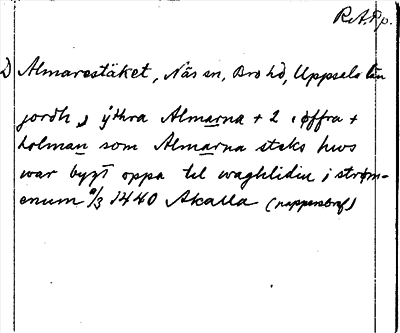 R.A.Pp.
D Almarestäket, Näs sn, Bro hd, Uppsala län
jordh, ythra Almarna + 2 , offra +
holman som Almarna staks hws
war bygt oppa til waghlidin i strøm-
enum 9/3 1440 Akalla